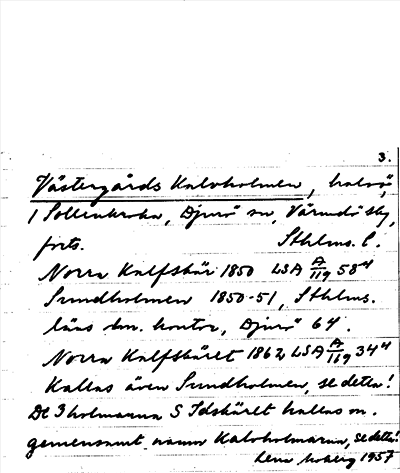 3.
Västergårds Kalvholmen, halvö,
i Sollenkroka, Djurö sn, Värmdö skg,
forts. Sthlms. l.
Norra Kalfskär 1850 LSA A/119 58⁴
Sundholmen 1850-51, Sthlms.
läns lm. kontor, Djurö 64.
Norra Kalfskäret 1862, LSA A/119 34⁴
Kallas även Sundholmen, se detta!
De 3 holmarna S Idskäret kallas m.
gemensamt namn Kalvholmarna, se detta!
1957